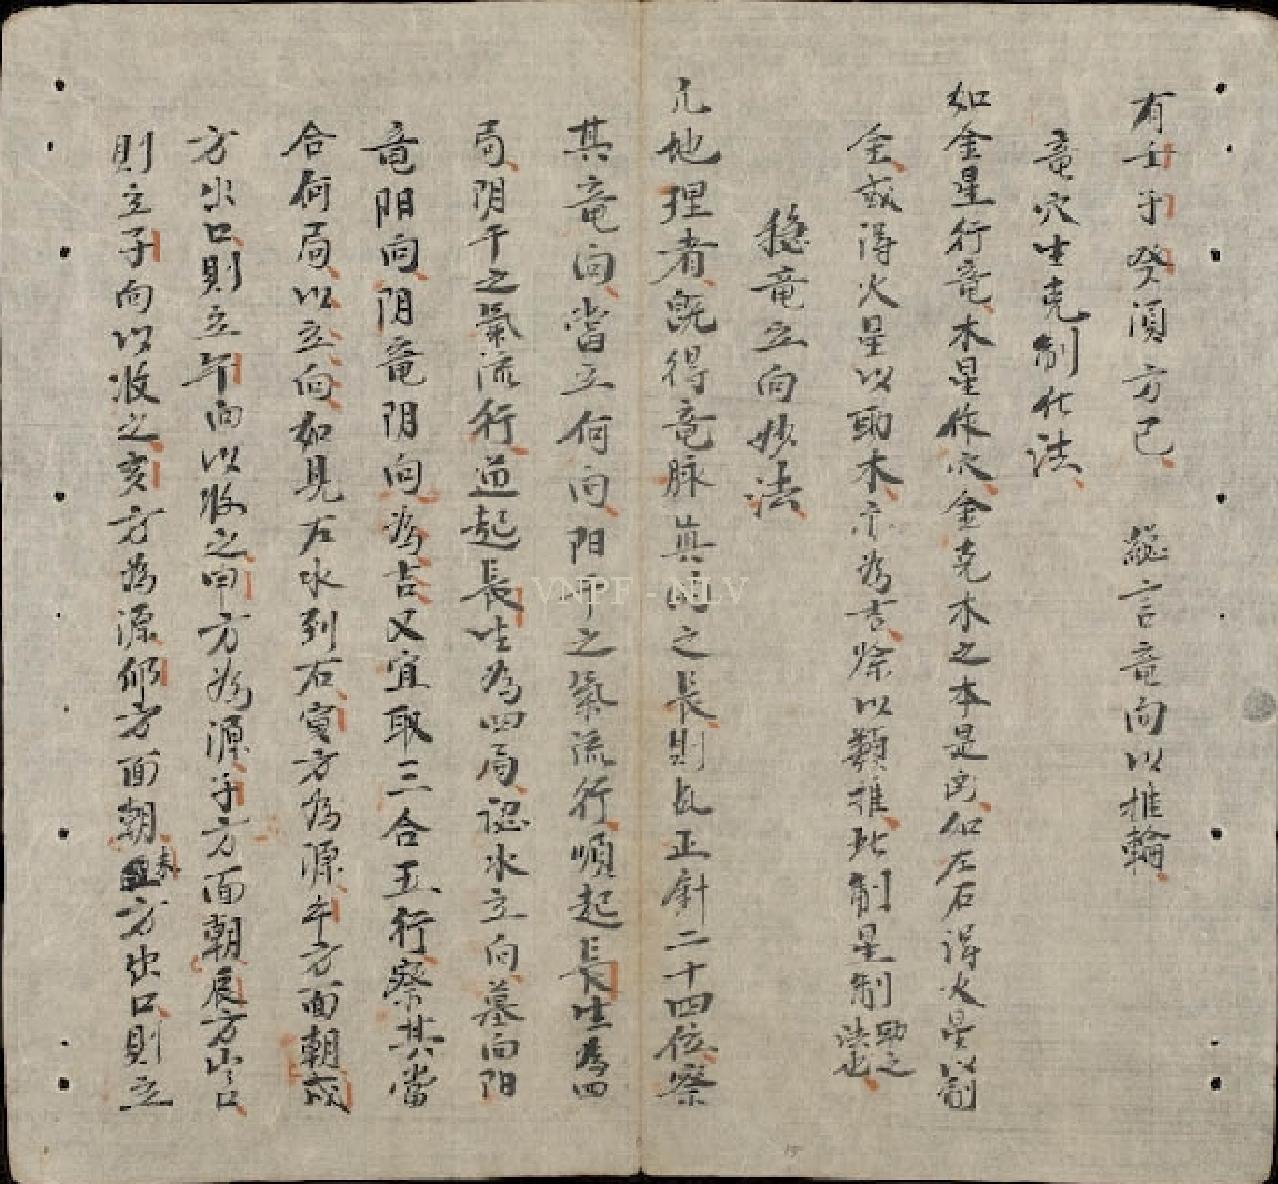 有壬子癸須方已　縂言竜向以推輪
竜穴生克制化法
如金星行竜木星作穴金克木之本是凶如左右得火星以制
金或得火星以助木亦為吉餘以類推此制星制助之法也
穏竜立向妙法
凡地理者既得竜脉真的之長則以正針二十四位察
其竜向當立何向陽干之氣流行順起長生為四
局阴干之氣流行逆起長生為四局認水立向墓向阳
竜阳向阴竜阴向為吉又宜取三合五行察其當
合何局以立向如見左水到右寅方為源午方面朝戌
方出口則立午向以收之申方為源子方面朝辰方出口
則立子向以收之亥方為源卯方面朝未方出口則立
VNPF - NLV
15